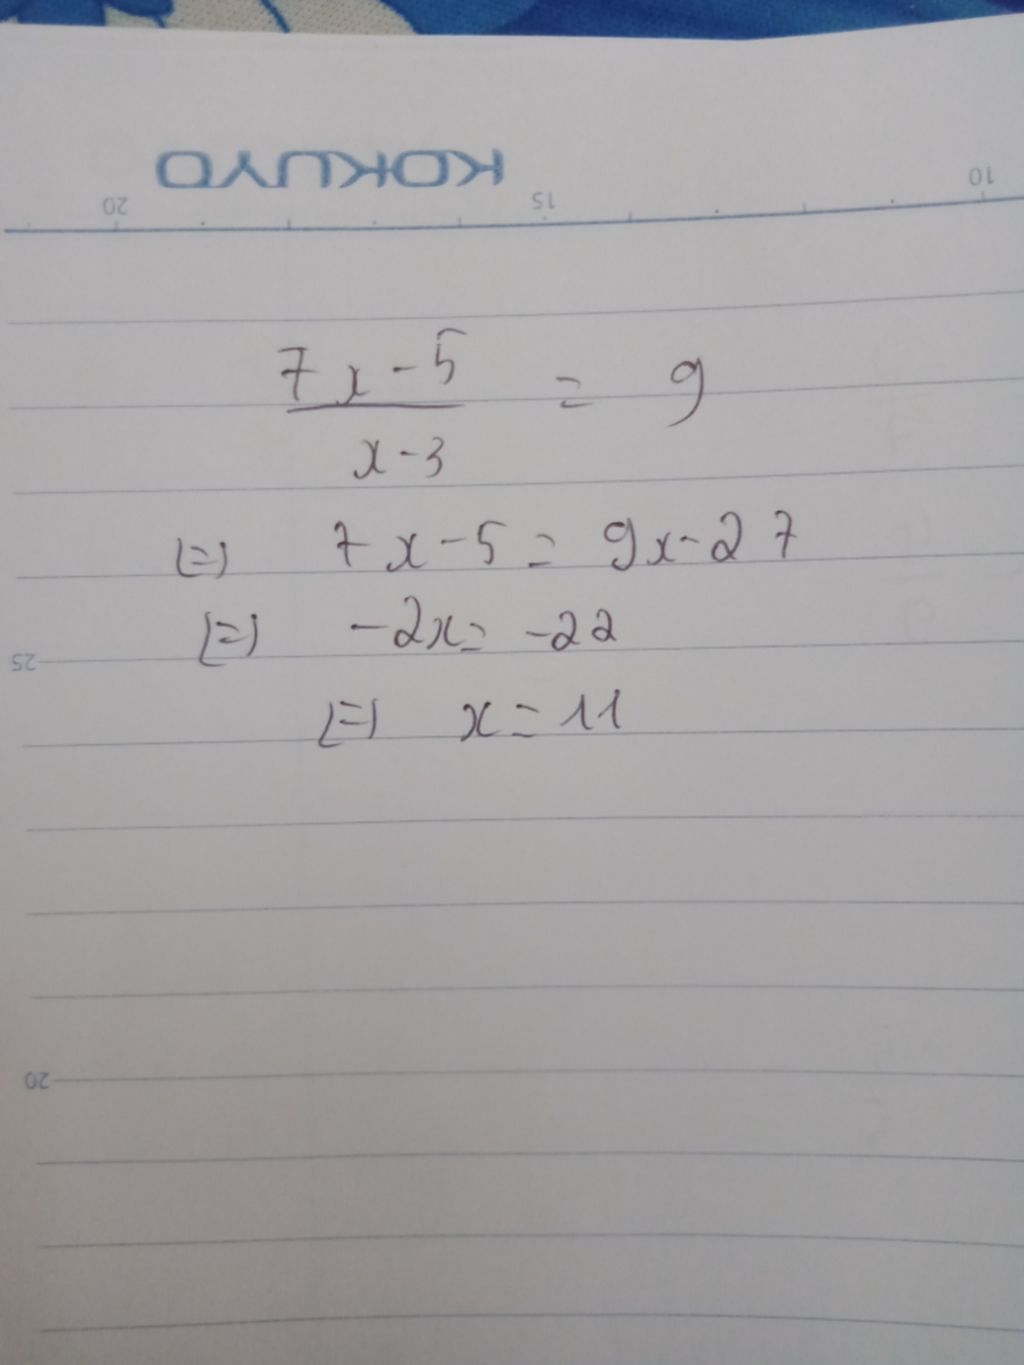 KOKUYO
20 15 10
7x-5
——— = 9
x-3
(=) 7x-5 = 9x-27
25
(=) -2x = -22
(=) x = 11
20